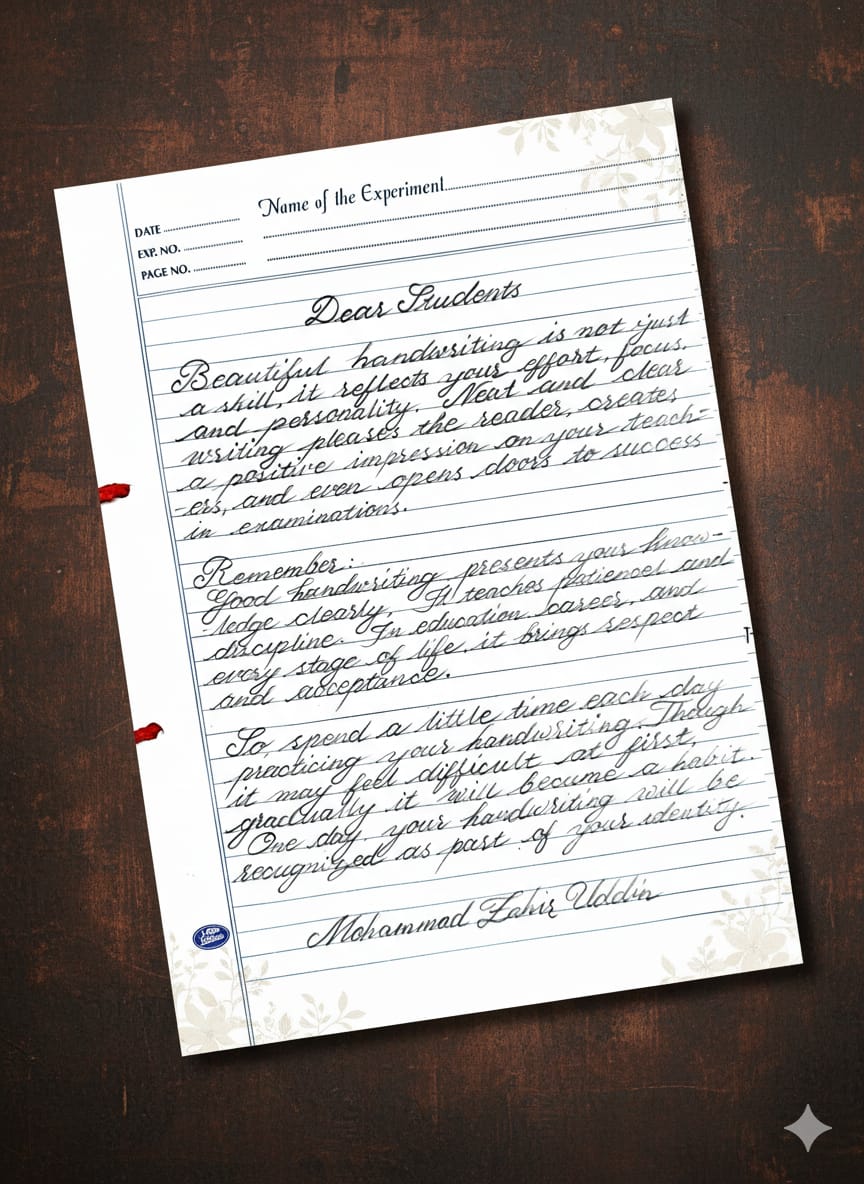 Name of the Experiment
DATE
EXP. NO.
PAGE NO.
Dear Students
Beautiful handwriting is not just
a skill, it reflects your effort, focus,
and personality. Neat and clear
writing pleases the reader, creates
a positive impression on your teach-
-ers, and even opens doors to success
in examinations.
Remember:
Good handwriting presents your know-
-ledge clearly. It teaches patience and
discipline. In education, career, and
every stage of life, it brings respect
and acceptance.
So spend a little time each day
practicing your handwriting. Though
it may feel difficult at first,
gradually it will become a habit.
One day, your handwriting will be
recognized as part of your identity.
Mohammad Zahir Uddin